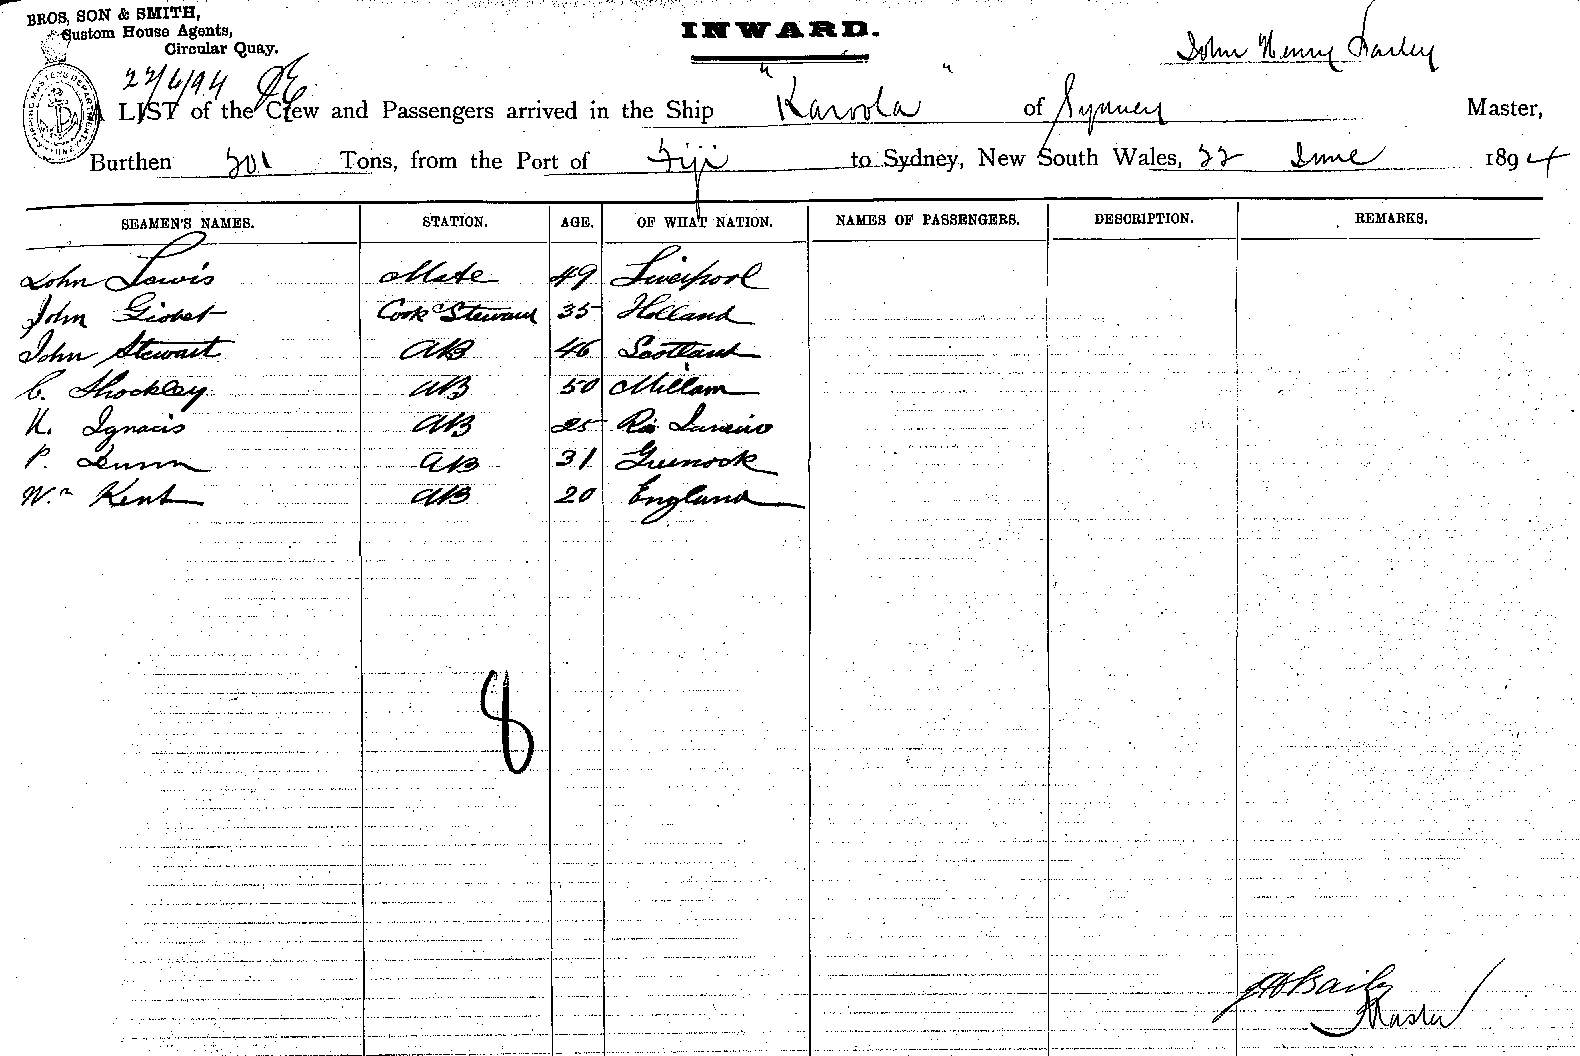 BROS, SON & SMITH,
Custom House Agents,
Circular Quay.
INWARD.
John Henry Bailey
22/6/94
A LIST of the Crew and Passengers arrived in the Ship "Karoola" of Sydney Master,
Burthen 301 Tons, from the Port of Fiji to Sydney, New South Wales, 22 June 1894
SEAMEN'S NAMES. STATION. AGE. OF WHAT NATION. NAMES OF PASSENGERS. DESCRIPTION. REMARKS.
John Lewis Mate 49 Liverpool
John Cook & Steward 35 Holland
John Stewart AB 46 Scotland
C. Shockley AB 50 Millam
K. Ignacis AB 25 Rio Janeiro
P. AB 31 Greenock
Wm Kent AB 20 England
8
JHBaily
Master